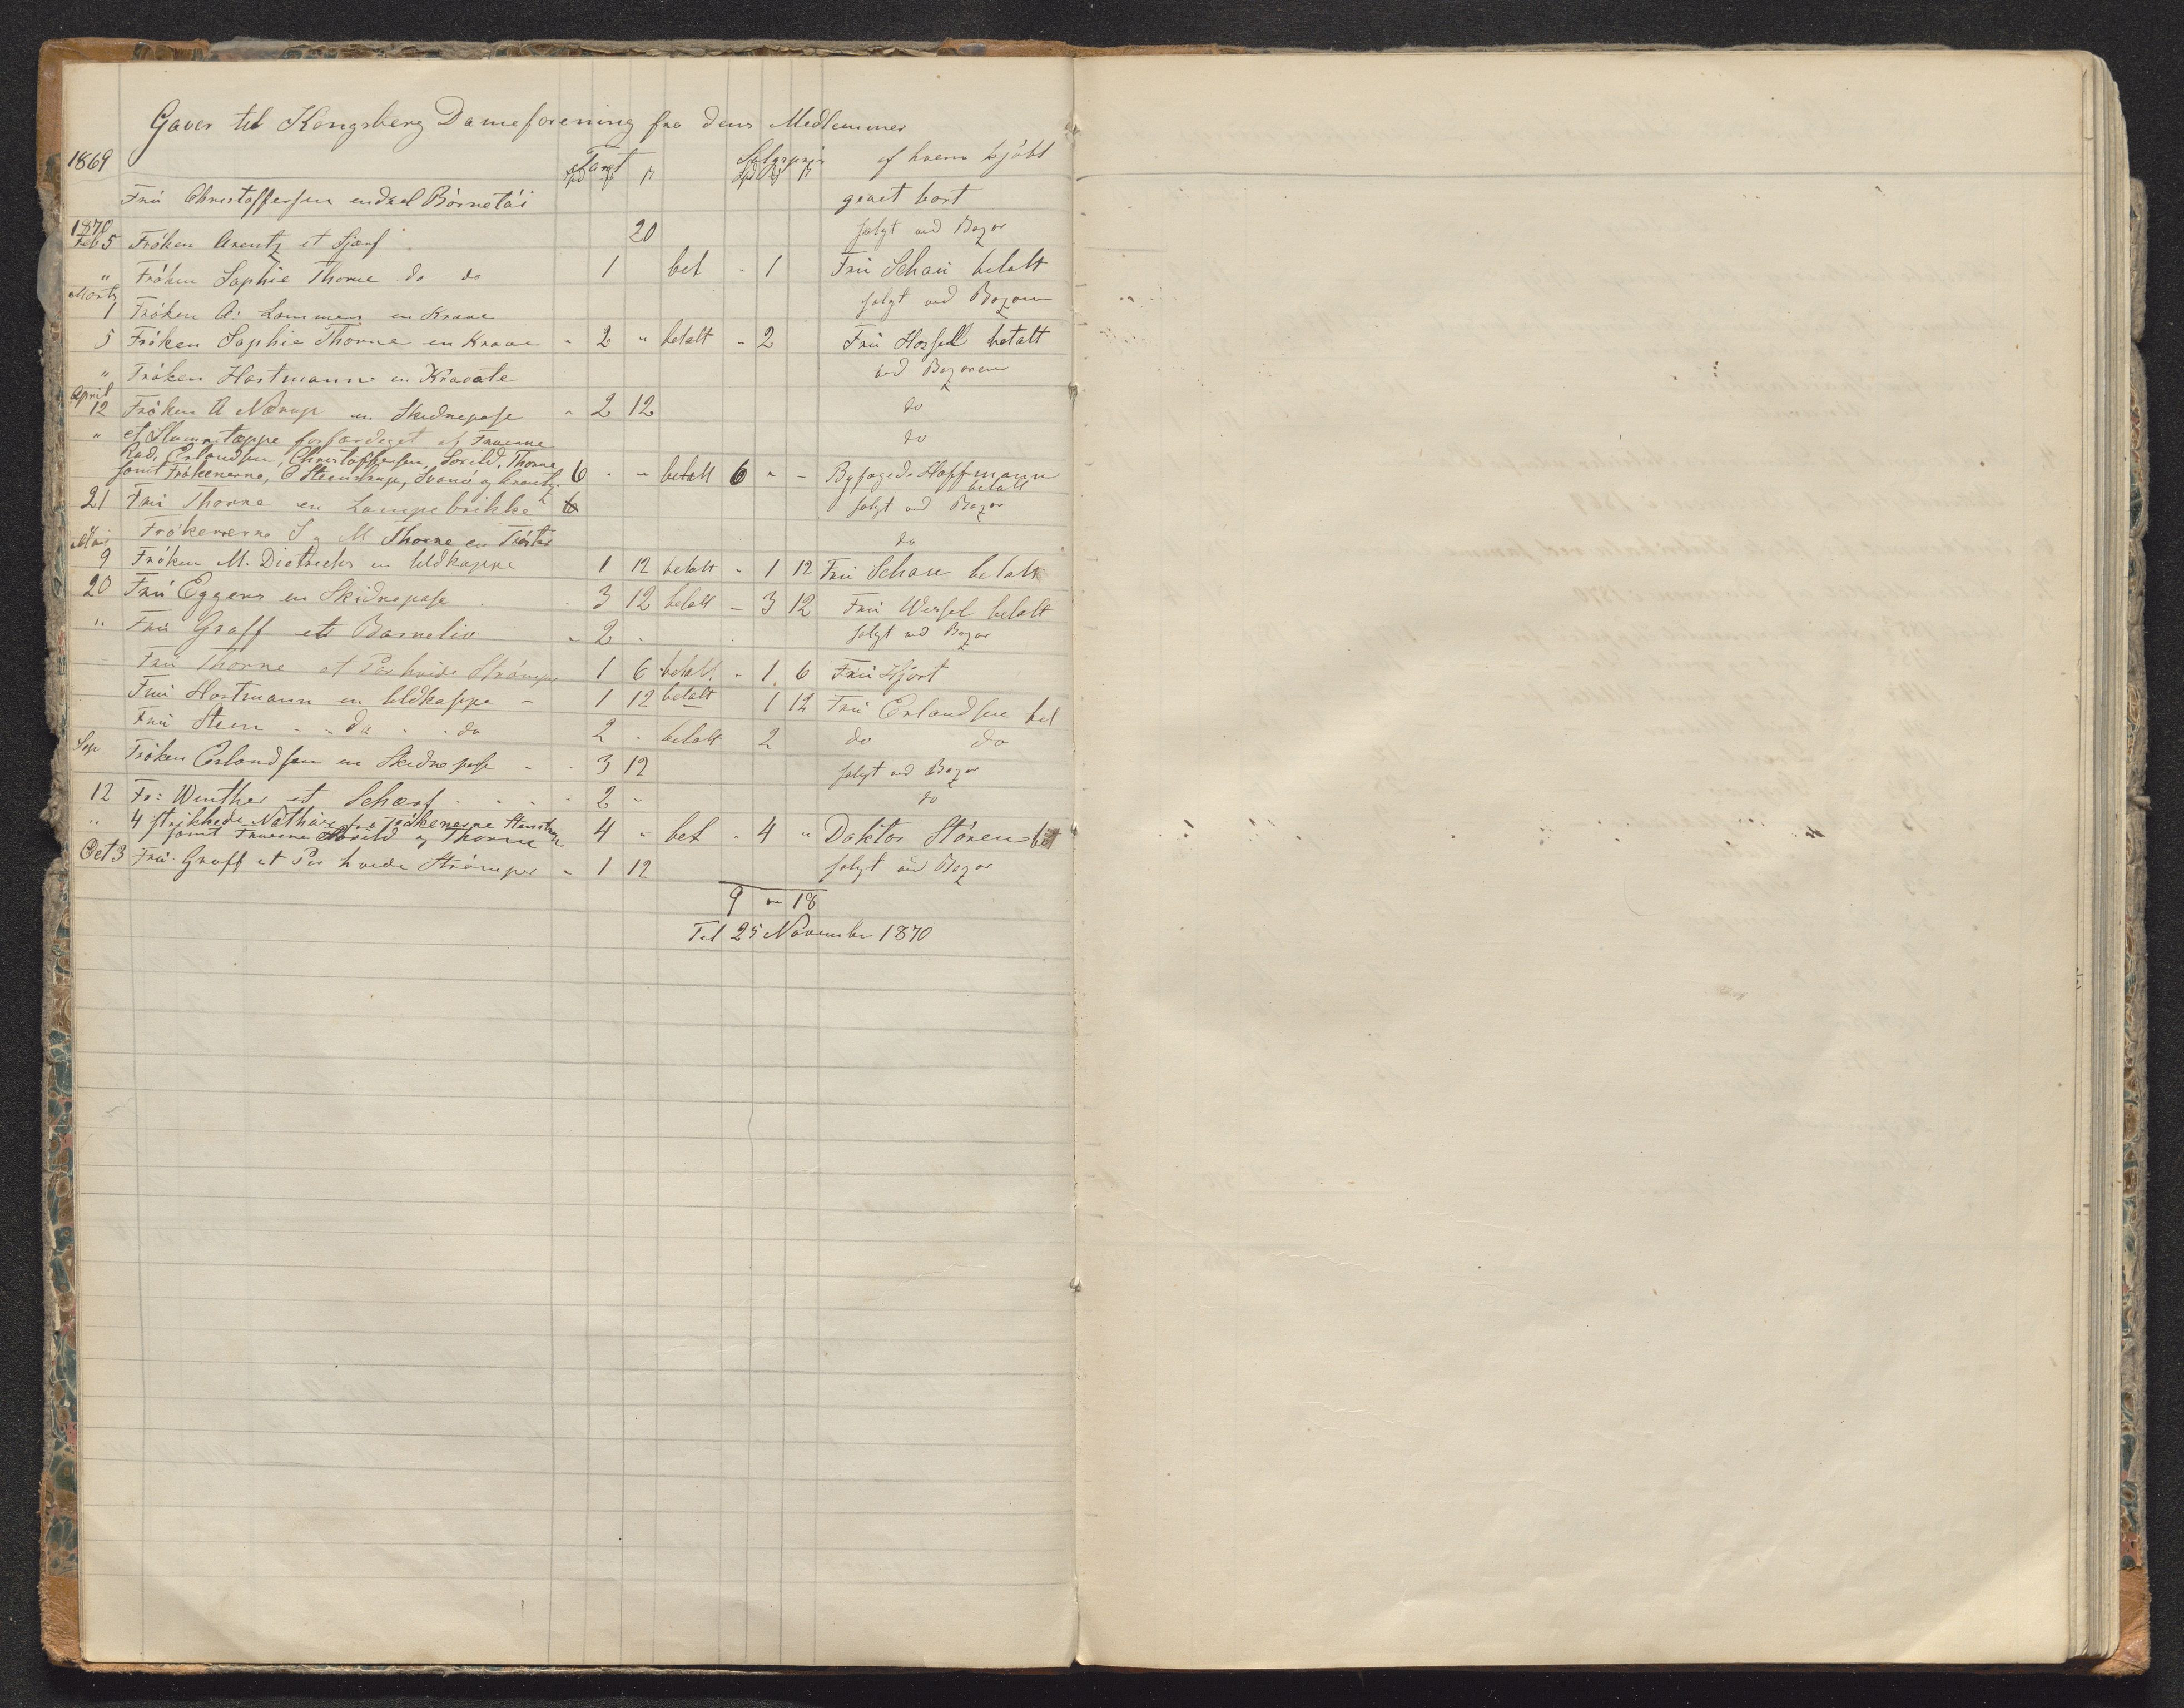 Gaver til Kongsberg Dameforening fra dens Medlemmer
1869 Taxt Salgspris af hvem kjöbt
Spd ß Spd ß
Frú Christoffersen endeel Börnetöi givet bort
1870
Feb 5 Fröken Arentz et Sjærf 20 solgt ved Bazar
" Fröken Sophie Thorne do do 1 bet - 1 Frú Schau betalt
Marts
1 Fröken A: Lammers en Krave solgt ved Bazaren
5 Fröken Sophie Thorne en Krave - 2 " betalt - 2 Frú betalt
" Fröken Hartmann en Kravate ved Bazaren
April
12 Fröken A Nærup en Skidnepose - 2 12 do
" et Slummetæppe forfærdiget af Fruerne do
Rad, Erlandsen, Christoffersen, Sorild, Thorne
samt Frökenerne, C Steenstrup, Svanö og Arentz 6 - - betalt 6 - - Byfoged Hoffmann
betalt
21 Frú Thorne en Lampebrikke 6 solgt ved Bazar
Frökenerne S og M Thorne en do
Mai
9 Fröken M. Dietrichs en Uldkappe 1 12 betalt - 1 12 Frú Schau betalt
20 Frú Eggers en Skidnepose - 3 12 betalt - 3 12 Frú Wessel betalt
" Frú Graff et Barneliv - 2 - solgt ved Bazar
Frú Thorne et Par hvide Strömper 1 6 betalt - 1 6 Frú Hjort
Frú Hartmann en Uldkappe - 1 12 betalt 1 12 Frú Erlandsen bet
Frú Steen - - do - - do 2 - betalt 2 do do
Sep Fröken Erlandsen en Skidnepose - - 3 12 solgt ved Bazar
12 Fr: Winther et Schærf - - - - 2 - do
" 4 strikkede Nathuer fra Frökenerne Steenstrup
samt Fruerne Sorild og Thorne 4 - bet - 4 " Doktor Stören bet
Oct 3 Frú Graff et Par hvide Strömper - 1 12 solgt ved Bazar
9 " 18
Til 25 November 1870